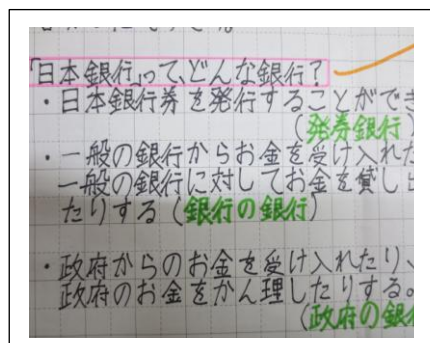 「日本銀行」って、どんな銀行？
・日本銀行券を発行することができ
(発券銀行)
・一般の銀行からお金を受け入れた
一般の銀行に対してお金を貸し出
たりする(銀行の銀行)
・政府からのお金を受け入れたり、
政府のお金をかん理したりする。
(政府の銀行